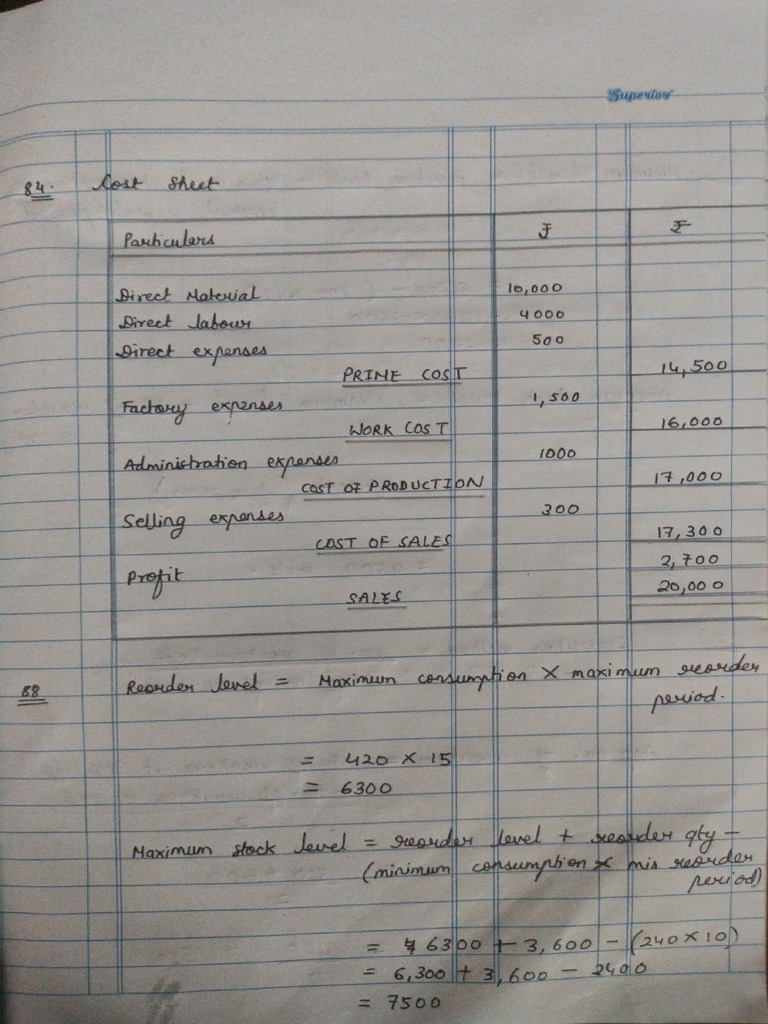 Superior
84. Cost Sheet
Particulers ₹ ₹
Direct Material 10,000
Direct labour 4000
Direct expenses 500
PRIME COST 14,500
Factory expenses 1,500
WORK COST 16,000
Administration expenses 1000
COST OF PRODUCTION 17,000
Selling expenses 300
COST OF SALES 17,300
Profit 2,700
SALES 20,000
88 Reorder level = Maximum consumption X maximum reorder
period.
= 420 X 15
= 6300
Maximum stock level = reorder level + reorder qty –
(minimum consumption X min reorder
period)
= 6300 + 3,600 – (240 X 10)
= 6,300 + 3,600 – 2400
= 7500